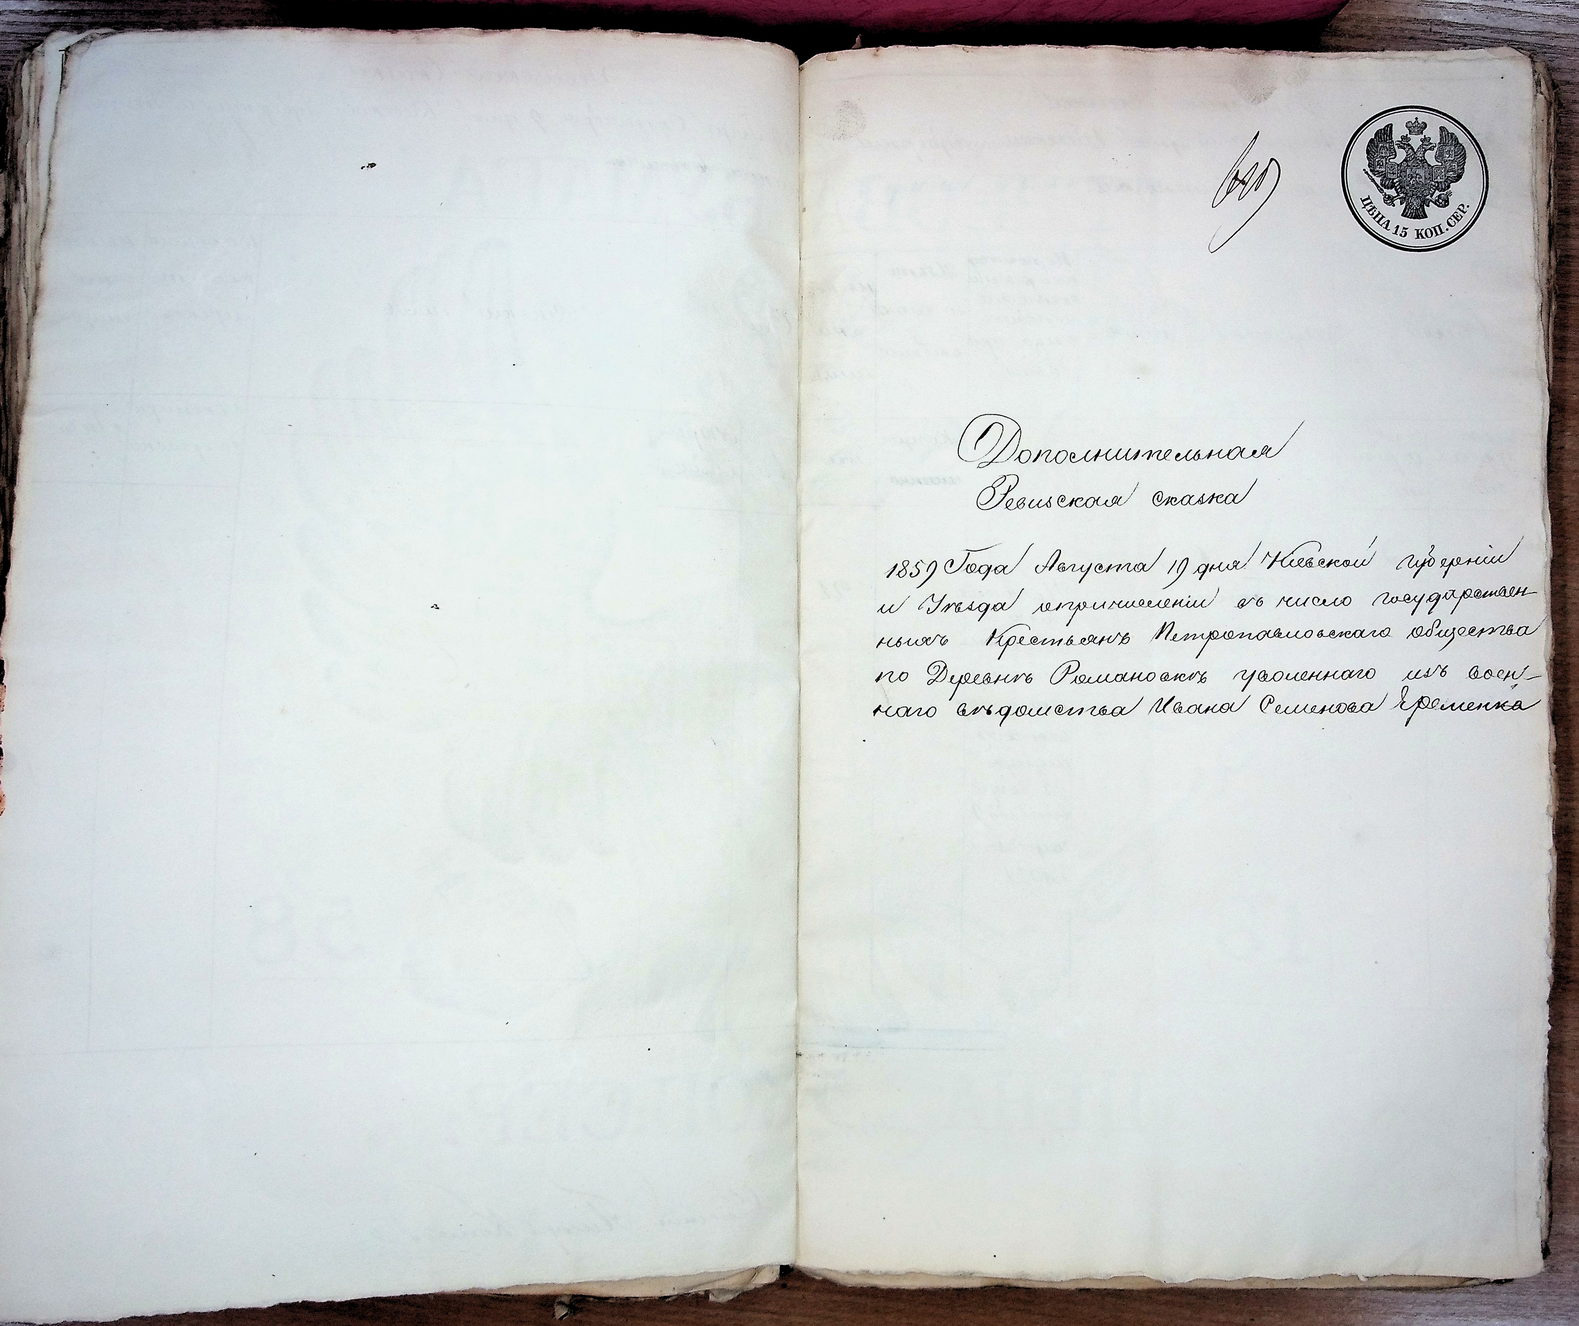 ЦѢНА 15 КОП. СЕР.
Дополнительная
Ревизская сказка
1859 Года Августа 19 дня Кіевской губерніи
и Уѣзда опричисленіи въ число государствен-
ныхъ Крестьянъ Петропавловскаго общества
по Деревнѣ Романовкѣ уволеннаго изъ воен-
наго вѣдомства Ивана Семенова Еременка